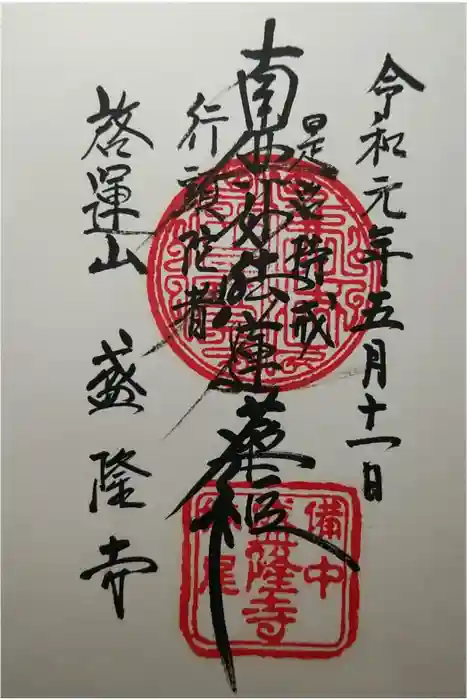 令和元年五月十一日
是名持戒
南無妙法蓮華經
行頭陀者
啓運山 盛隆寺
備中
盛隆寺
妹尾